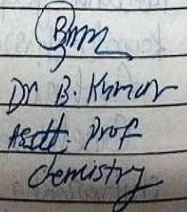 Dr B. Kumar
Asstt. Prof
chemistry